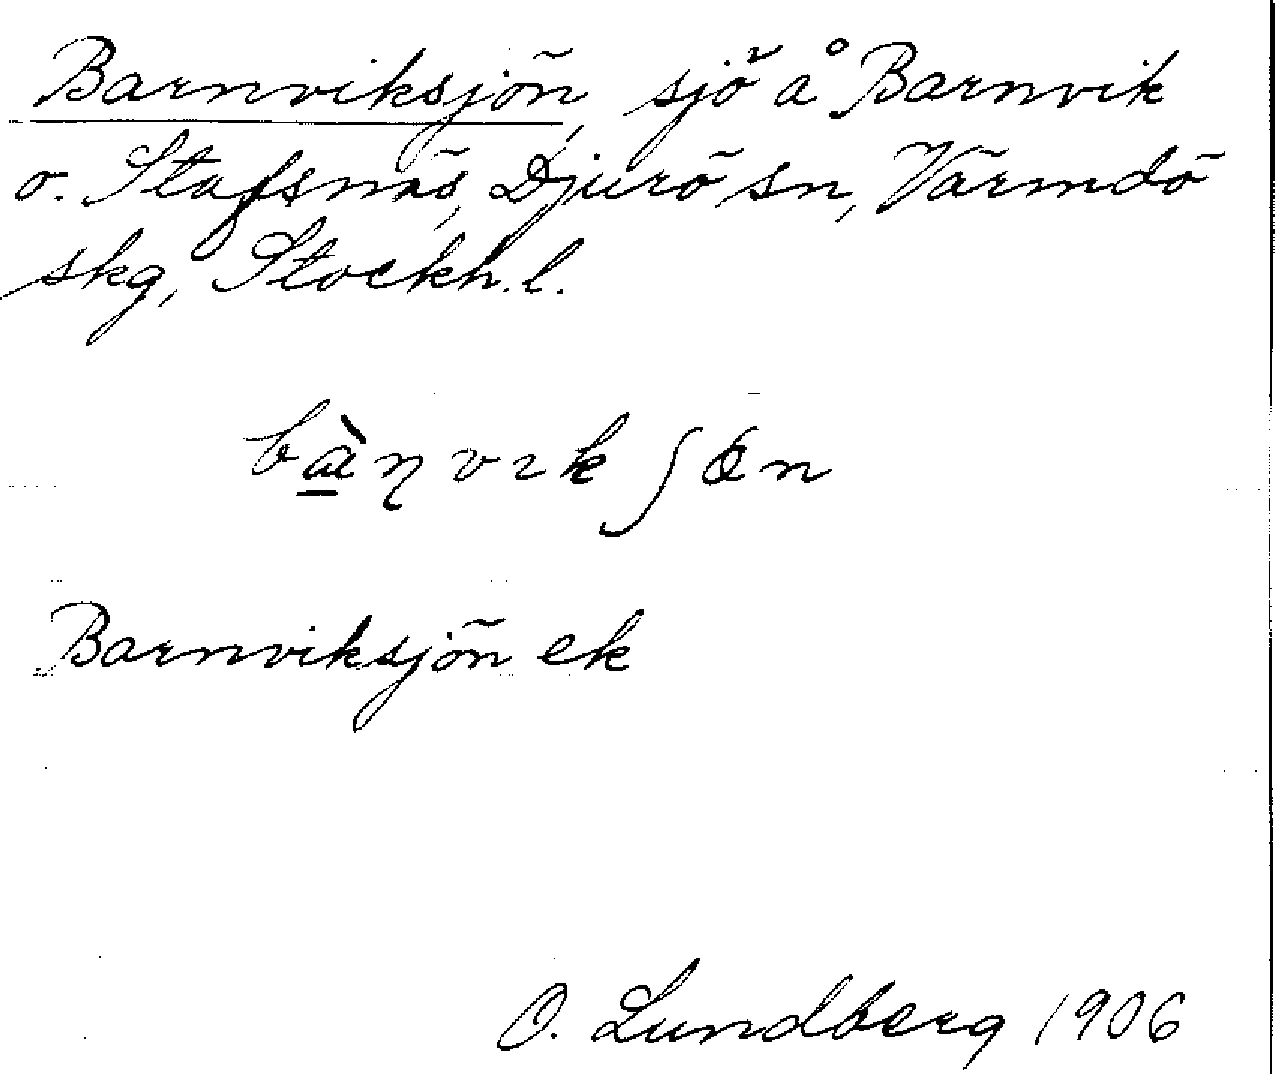 Barnviksjön, sjö å Barnvik
o. Stafsnäs, Djurö sn, Värmdö
skg, Stockh. l.
bὰɳvɪkʃɶn
Barnviksjön ek
O. Lundberg 1906